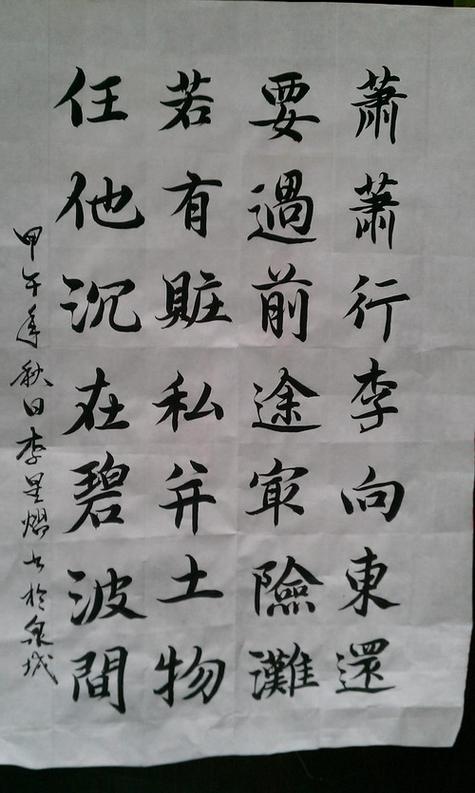 蕭蕭行李向東還
要過前途冣險灘
若有賍私并土物
任他沉在碧波間
甲午年秋日李星熠书於泉城